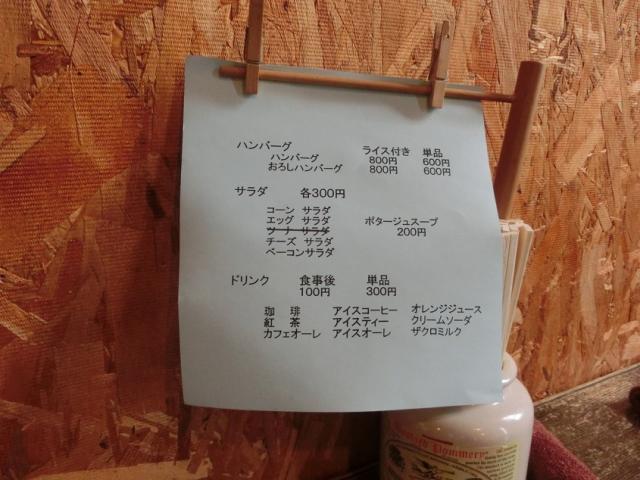 ハンバーグ ライス付き 単品
ハンバーグ 800円 600円
おろしハンバーグ 800円 600円
サラダ 各300円
コーン サラダ
エッグ サラダ ポタージュスープ
ツナ サラダ 200円
チーズ サラダ
ベーコンサラダ
ドリンク 食事後 単品
100円 300円
珈琲 アイスコーヒー オレンジジュース
紅茶 アイスティー クリームソーダ
カフェオーレ アイスオーレ ザクロミルク
Pommery